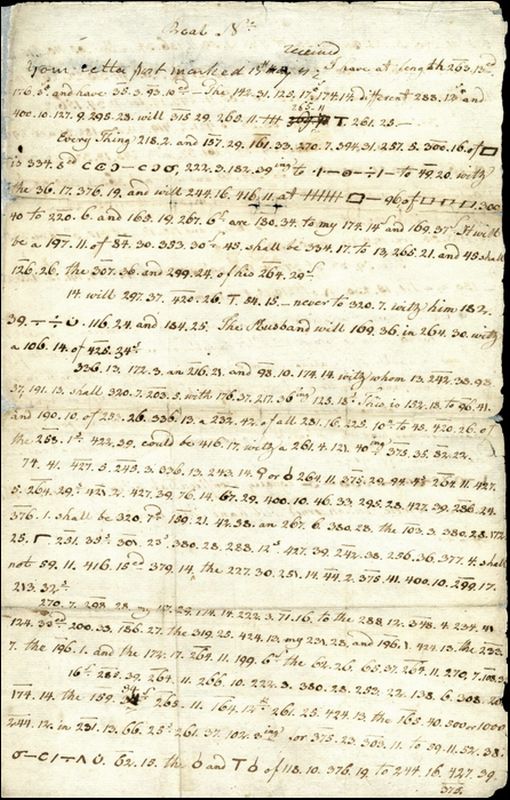 Your letter post marked 15th I have at length 263. 13ed
176. 8t. and have 35. 3. 93. 10ed — The 142. 31. 125. 17 174 14 different 288. 12 and
400. 10. 127. 9. 295. 28. will 315. 29. 265. 11. T. 261. 25.—
Every Thing 218. 2. and 157. 29. 161. 33. 270. 7. 394. 31. 287. 5. 300. 16. of □
is 334. 8ed 222. 3. 182. 39ing to to 49. 20. with
the 36. 17. 376. 19. and will 244. 16. 416. 11. at □ — 96 of 300
40 to 220. 6. and 165. 19. 267. 6 are 130. 34. to my 174. 14 and 169. 37 It will
be a 197. 11. of 84. 30. 353. 30 45. shall be 334. 17. to 13, 265. 21. and 45 shall
126. 26. the 307. 36. and 299. 24. of his 264. 29
14. will 297. 37. 420. 26. T. 84. 15. — never to 320. 7. with him 182.
39. 116. 24. and 184. 25. The Husband will 169. 36. in 264. 30. with
a 106. 14. of 425. 24
336. 13. 172. 3. an 216. 21. and 98. 10. 174. 14. with whom 13. 242. 38. 93
37, 191. 13. shall 320. 7. 203. 5. with 176. 37. 217. 36ing 125. 18 This is 152. 18. to 96. 41.
and 190. 10. of 283. 26. 336. 13. a 232. 42. of all 281. 16. 225. 10 to 45. 420. 26. of
the 258. 1 422. 39. could be 416. 17. with a 261. 4. 121. 40ing 375. 35. 82. 22.
74. 41. 427. 5. 243. 3. 336. 13. 243. 14. or 264. 11. 375. 29. 94. 4 264. 11. 427.
5. 264. 29 421. 2. 427. 39. 76. 14. 67. 29. 400. 10. 46. 33. 295. 28. 427. 39. 286. 24.
376. 1. shall be 320. 7ed 159. 21. 47. 38. an 267. 6. 380. 28. the 103. 3. 380. 28. 172
25. 251. 35 301. 23 380. 28. 283. 12 427. 39. 242. 38. 256. 36. 377. 4. shall
not 59. 11. 416. 15ed 379. 14. the 227. 30. 251. 14. 44. 2. 375. 41. 400. 10. 299. 17.
213. 32
270. 7. 298. 28. my 17. 29. 174. 14. 222. 3. 71. 16. to the 288. 12. 348. 4. 234. 41
124. 39ed 200. 33. 186. 27. the 319. 25. 424. 13. my 231. 28. and 196. 1. 424. 13. the 233.
7. the 196. 1. and the 174. 17. 264. 11. 199. 6 the 62. 26. 65. 37. 264. 11. 270. 7. 108. 3
16 282. 39. 264. 11. 266. 10. 222. 3. 380. 28. 253. 22. 138. 6. 308. 20
174. 14. the 159. 34 265. 11. 164. 12 261. 25. 424. 13. the 165. 40. 500 or 1000
244. 12. in 231. 13. 66. 25 261. 37. 102. 3ing or 375. 23. 303. 11. to 59. 11. 52. 38.
62. 15. the and T of 118. 10. 376. 19. to 244. 16. 427. 39.
375.